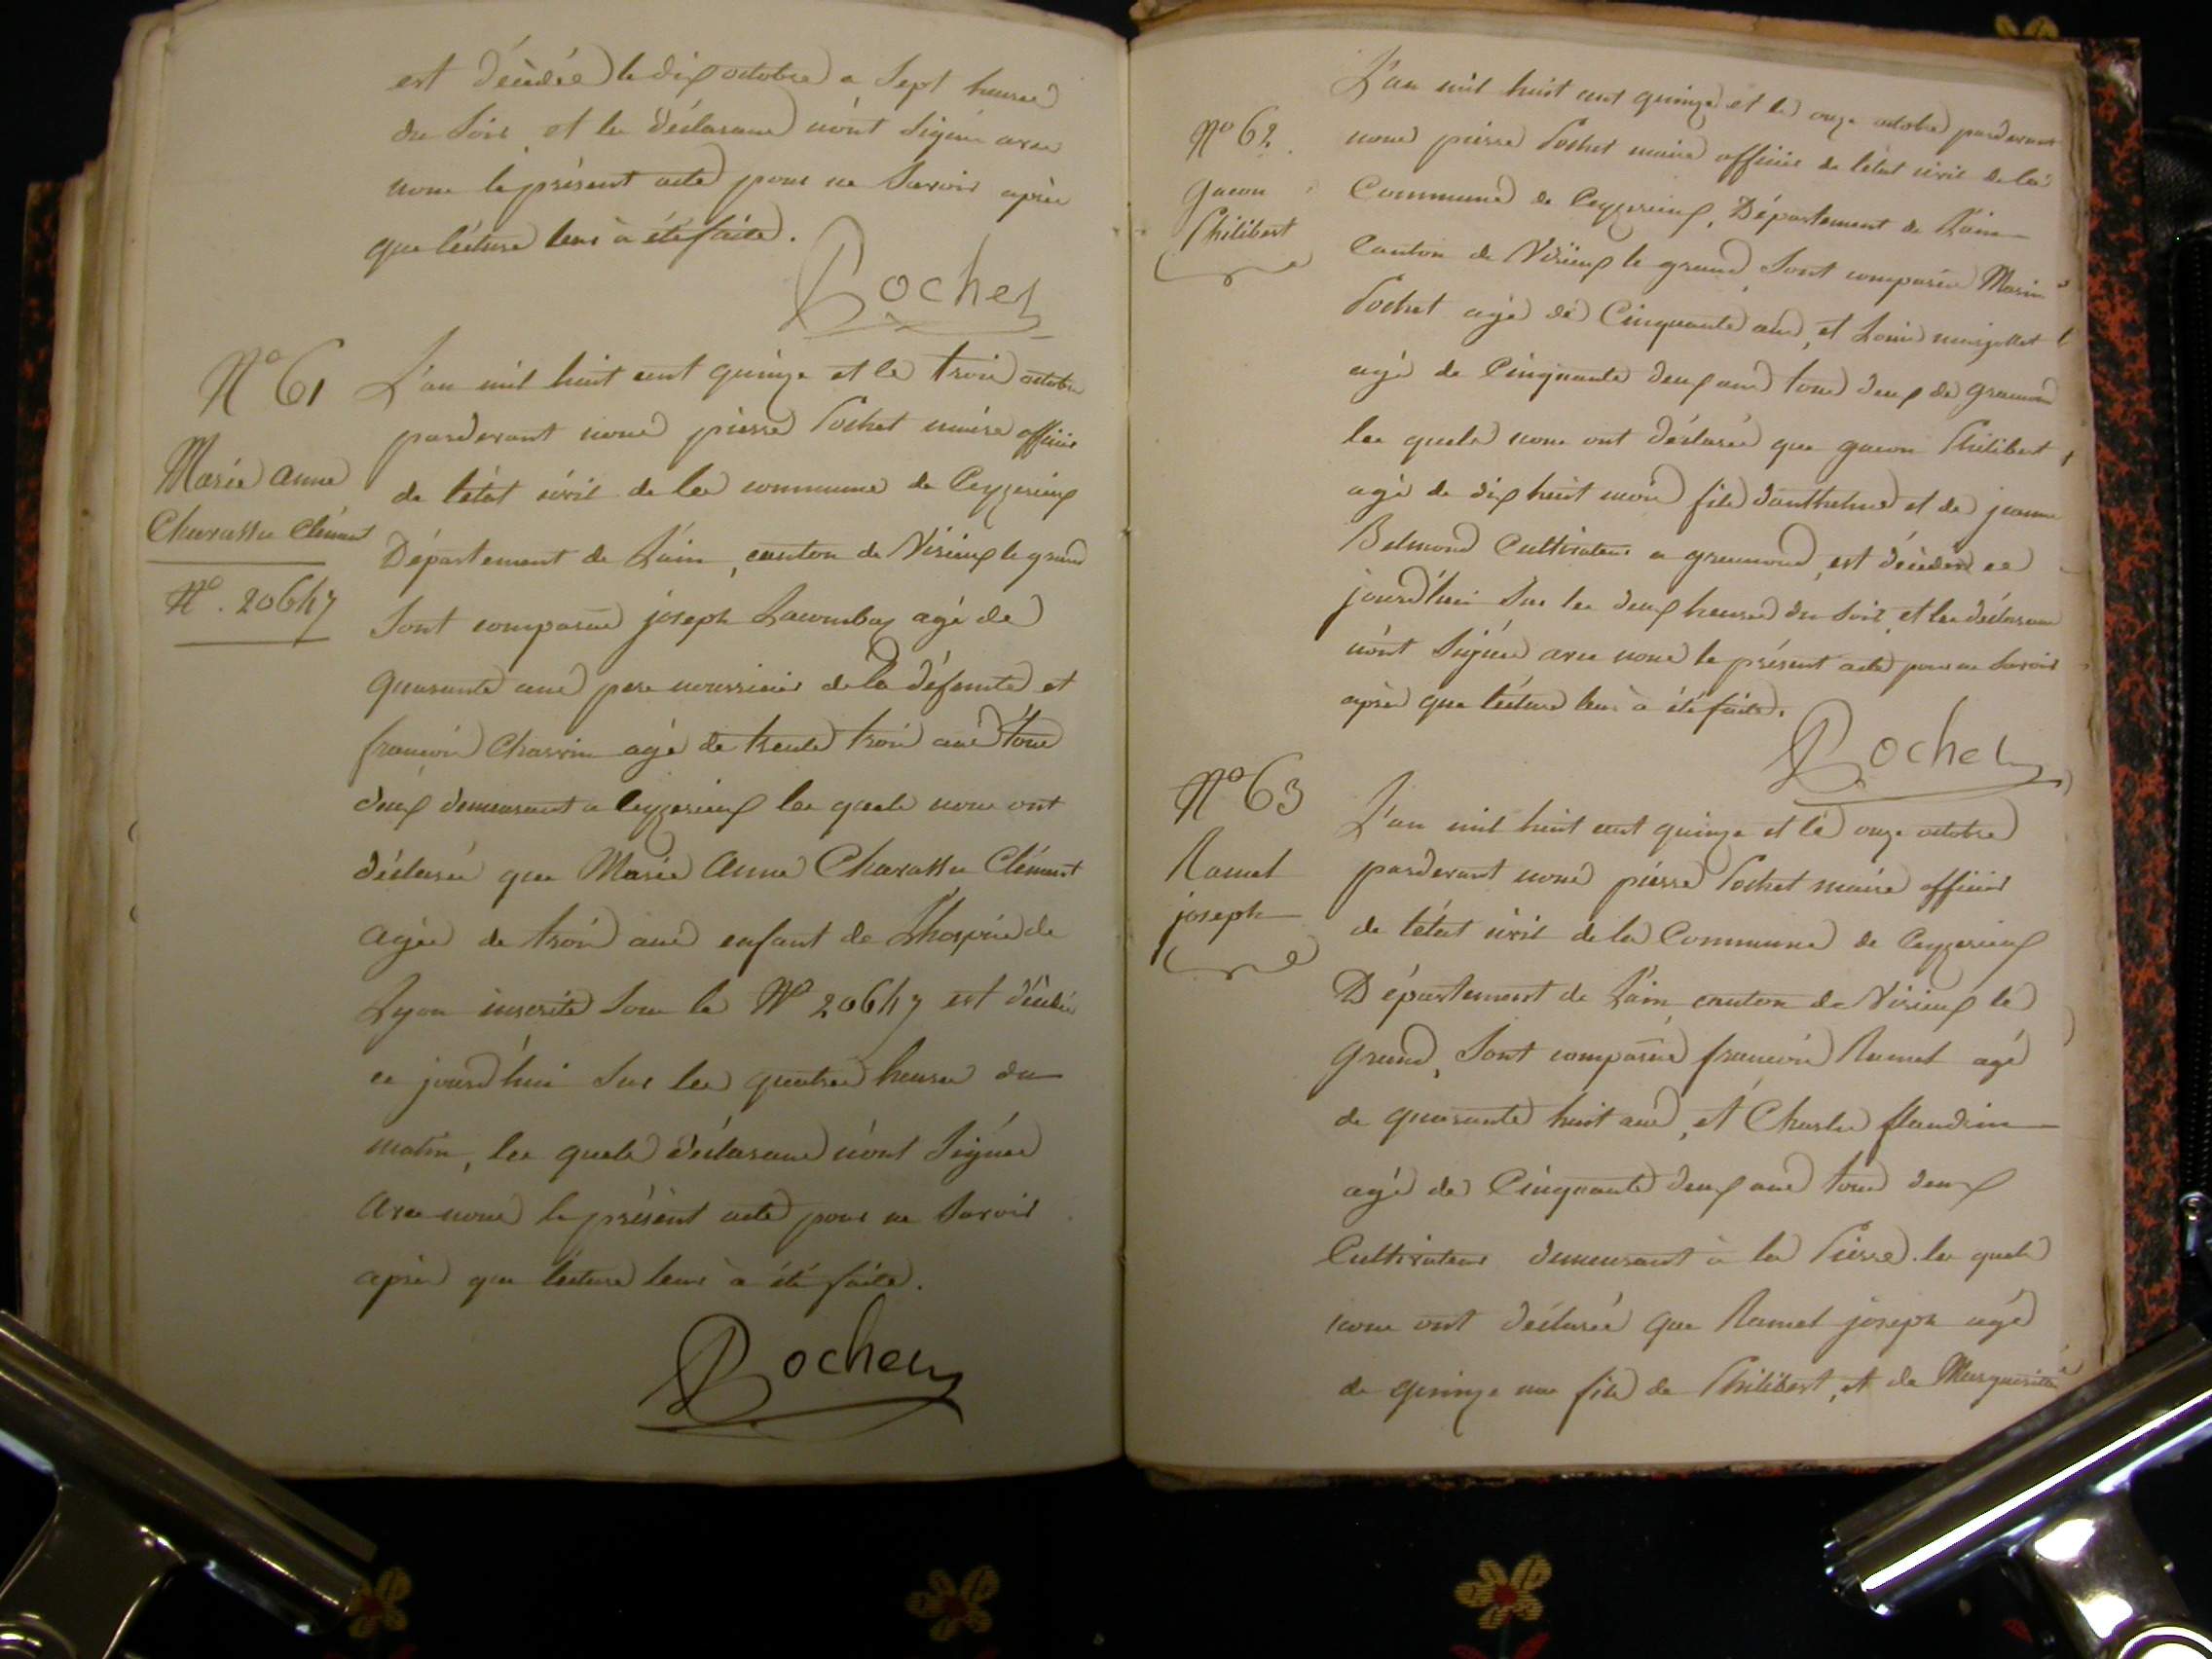 est décédée le dix octobre a Sept heures
du Soir et les déclarans n'ont Signés avec
nous le présent acte pour ne Savoir après
que lécture leur à été faite.
Pochet
N° 61
Marie Anne
Charasse Clément
N°. 20647
L'an mil huit cent quinze et le trois octobre
pardevant nous pierre Pochet maire officier
de létat civil de la commune de Ceyzerieux
Département de Lain, canton de Virieux le grand
Sont comparus joseph Lacombaz agé de
quarante ans pere nourricier de la défunte et
françois Charvin agé de trente trois ans tous
deux demeurant a Ceyzerieux les quels nous ont
déclaré que Marie Anne Charasse Clément
agée de trois ans enfant de Lhospice de
Lyon inscrite Sous le N° 20647 est décédée
ce jourd'hui Sur les quatres heures du
matin, les quels déclarans n'ont Signés
avec nous le présent acte pour ne Savoir
après que lécture leur à été faite.
Pochet
N° 62.
gacon
Philibert
L'an mil huit cent quinze et le onze octobre pardevant
nous pierre Pochet maire officier de létat civil de la
Commune de Ceyzerieux, Département de Lain
Canton de Virieux le grand, Sont comparus Marin
Pochet agé de Cinquante ans, et Louis
agé de Cinquante deux ans tous deux de gramond
les quels nous ont déclarés que gacon Philibert
agé de dix huit mois fils d'anthelme et de jeanne
Belmond Cultivateurs a gramond, est décédé ce
jourd'hui Sur les deux heures du Soir et les déclarans
n'ont Signés avec nous le présent acte pour ne Savoir
après que lécture leur à été faite.
Pochet
N° 63
Ramel
joseph
L'an mil huit cent quinze et le onze octobre
pardevant nous pierre Pochet maire officier
de létat civil de la Commune de Ceyzerieux
Département de Lain, canton de Virieux le
Grand, Sont comparus françois Ramel agé
de quarante huit ans, et Charles flandrin
agé de Cinquante deux ans tous deux
Cultivateurs demeurant à la Pierre les quels
nous ont déclarés que Ramel joseph agé
de quinze ans fils de Philibert, et de Marguerite